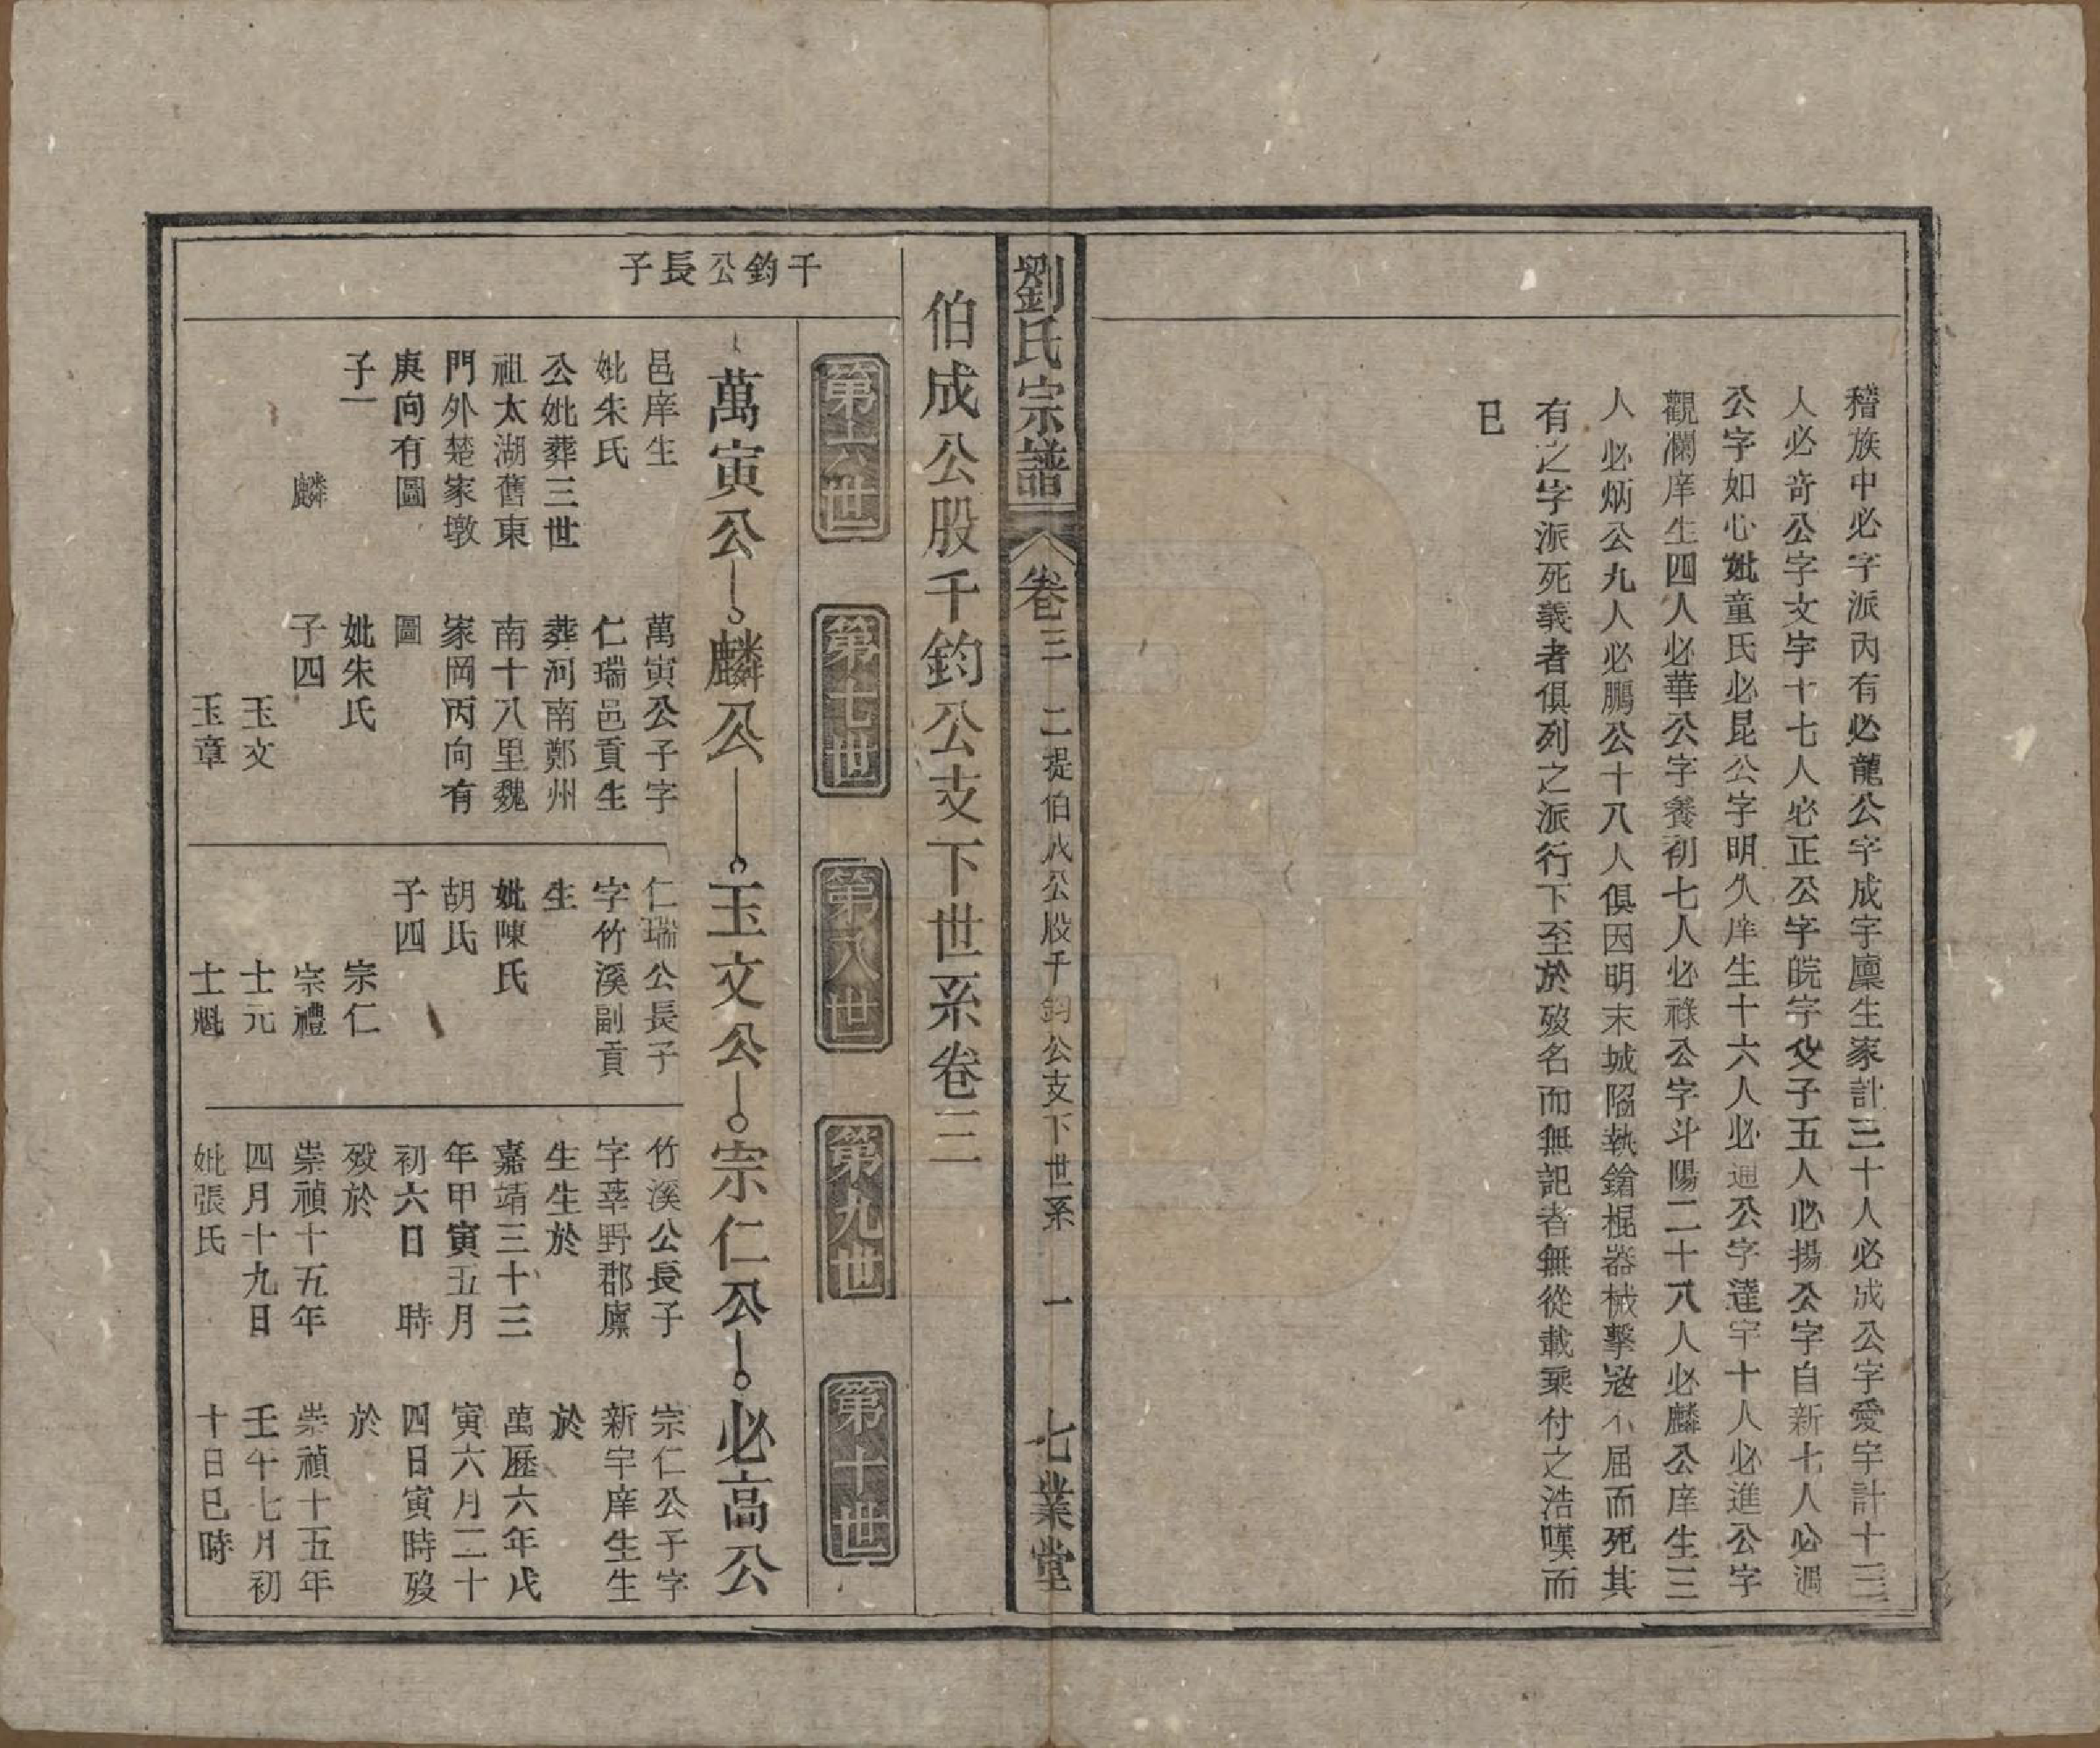 稽族中必字派內有必龍公字成宇廩生家計三十人必成公字愛宇計十三
人必奇公字文宇十七人必正公字皖字父子五人必揚公字自新七人必週
公字如心妣童氏必昆公字明久庠生十六人必通公字達宇十人必進公字
觀瀾庠生四人必華公字養初七人必祿公字斗陽二十八人必麟公庠生三
人必炳公九人必鵬公十八人俱因明末城陷執鎗棍器械擊寇不屈而死其
有之字派死義者俱列之派行下至於歿名而無記者無從載乘付之浩嘆而
巳
劉氏宗譜 卷三 二提伯成公股千鈞公支下世系 一 七業堂
伯成公股千鈞公支下世系卷三
第六世 第七世 第八世 第九世 第十世
千鈞公長子
萬寅公 麟公 玉文公 宗仁公 必高公
邑庠生
妣朱氏
公妣葬三世
祖太湖舊東
門外楚家墩
庚向有圖
子一
麟
萬寅公子字
仁瑞邑貢生
葬河南鄭州
南十八里魏
家岡丙向有
圖
妣朱氏
子四
玉文
玉章
仁瑞公長子
字竹溪副貢
生
妣陳氏
胡氏
子四
宗仁
宗禮
士元
士魁
竹溪公長子
字莘野郡廩
生生於
嘉靖三十三
年甲寅五月
初六日 時
歿於
崇禎十五年
四月十九日
妣張氏
宗仁公子字
新宇庠生生
於
萬歷六年戊
寅六月二十
四日寅時歿
於
崇禎十五年
壬午七月初
十日巳時